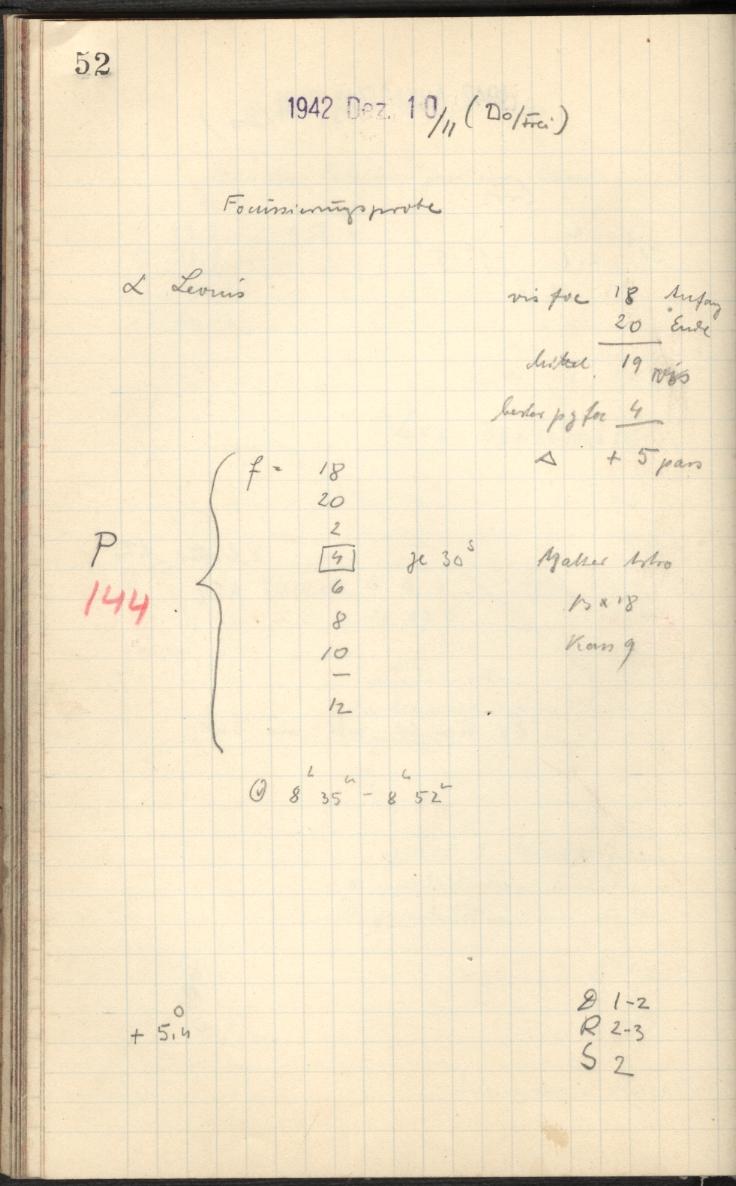 52
1942 Dez. 10/11 (Do/Frei)
Focussierungsprobe
α Leonis
vis foc 18 Anfang
20 Ende
Mittel 19 vis
bester pg foc 4
Δ + 5 pars
f = 18
20
2
4 je 30s
6
8
10
–
12
P
144
Astro
13 x 18
Kass 9
8h 35m – 8h 52m
+ 5.4°
D 1-2
R 2-3
S 2